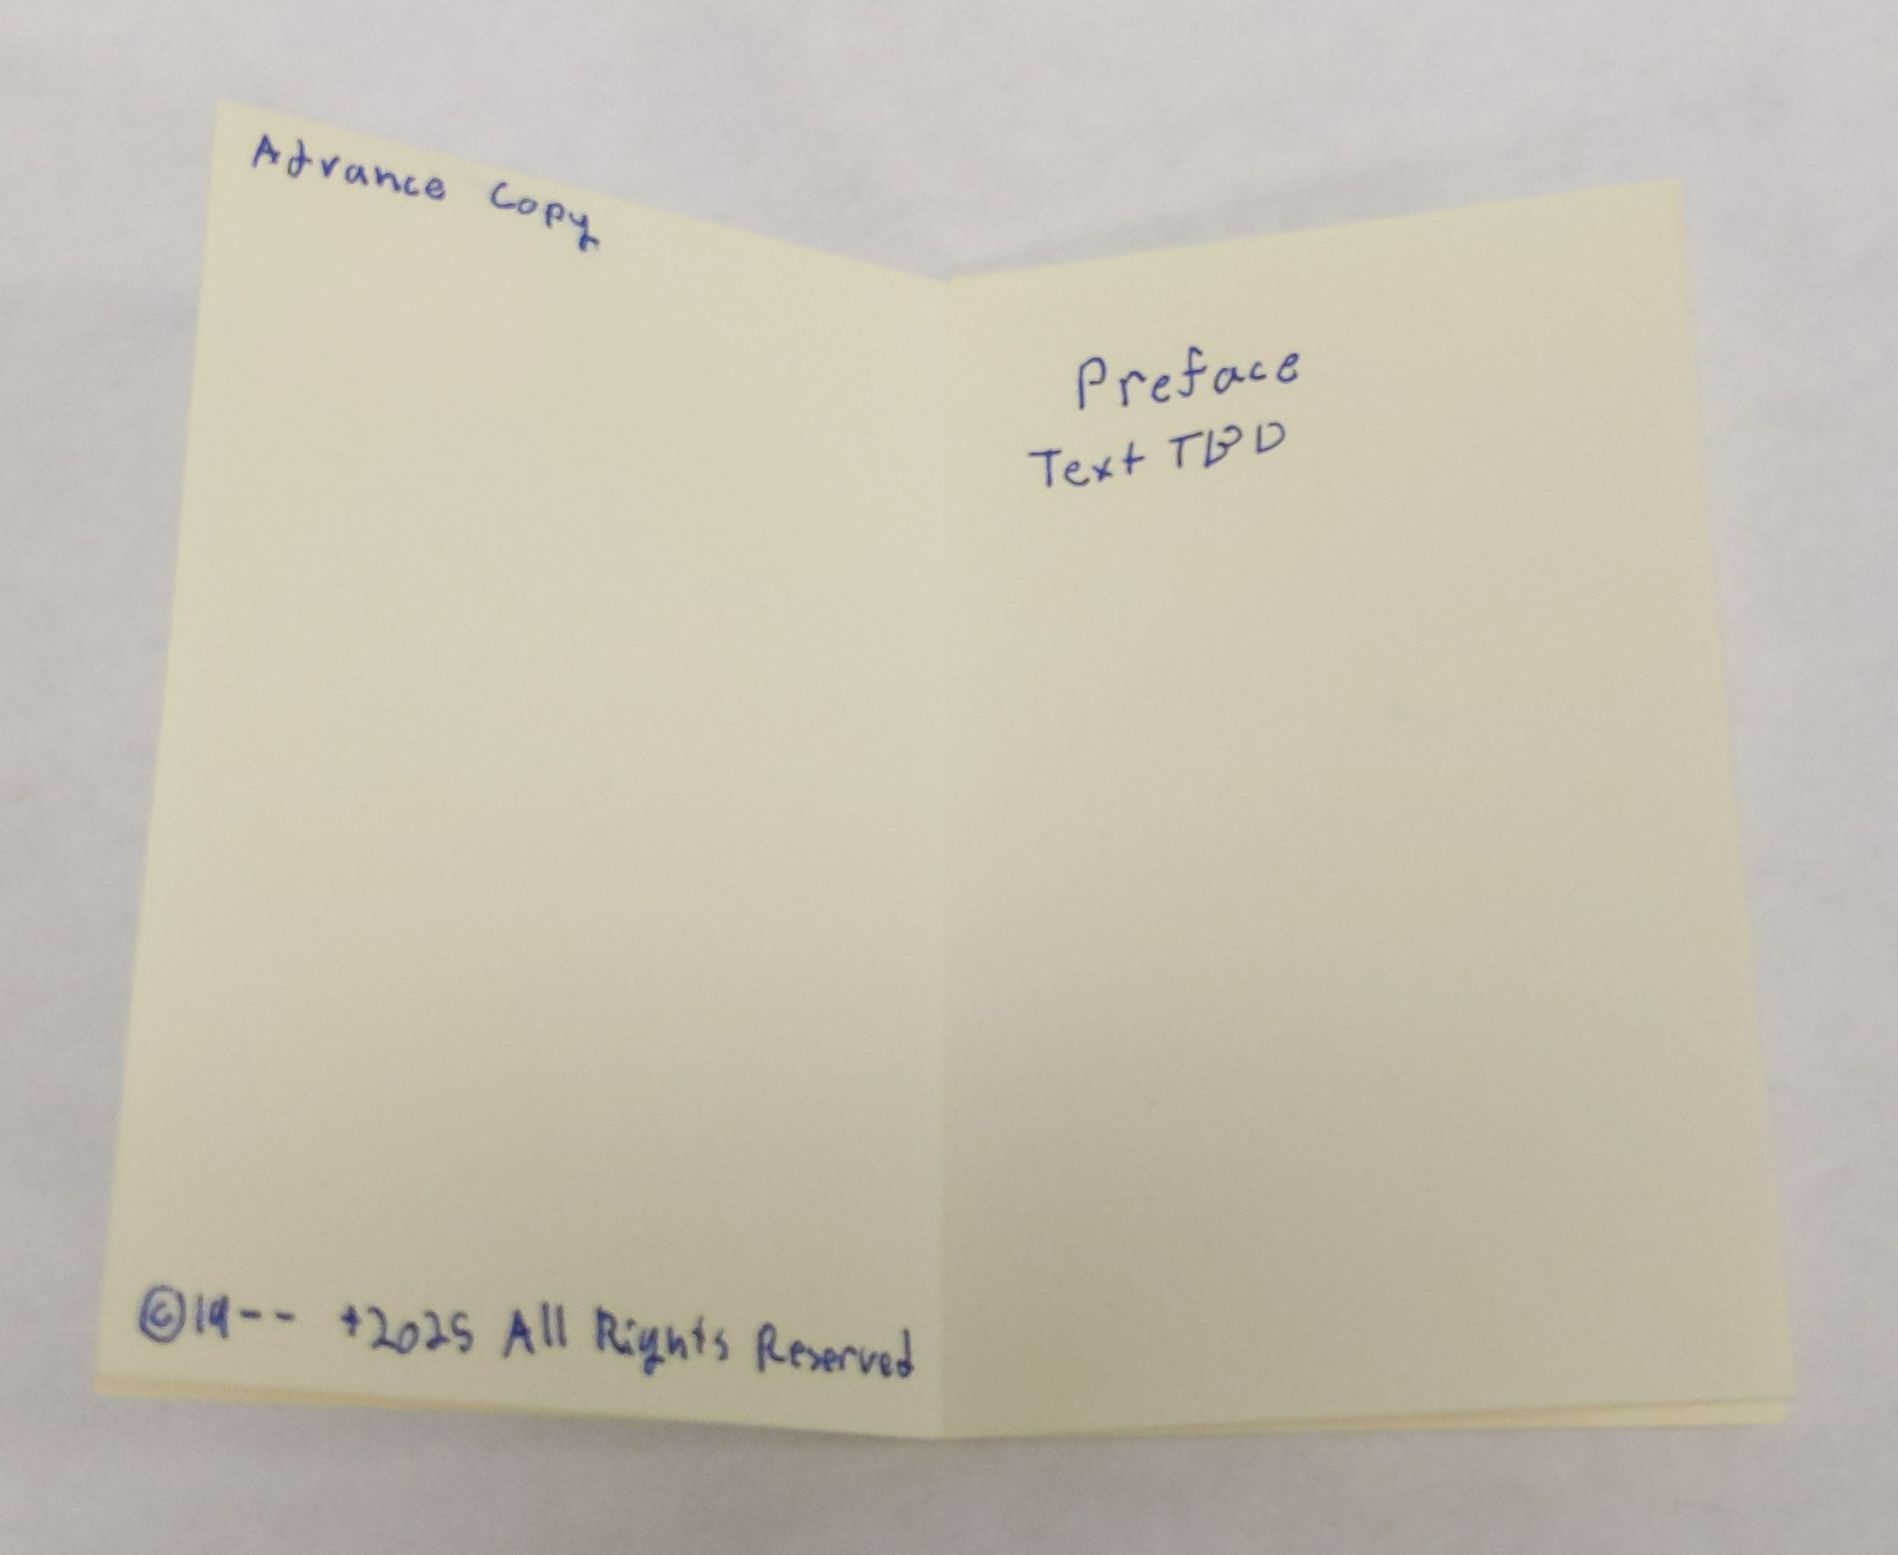 Advance Copy
©19-- +2025 All Rights Reserved
Preface
Text TBD